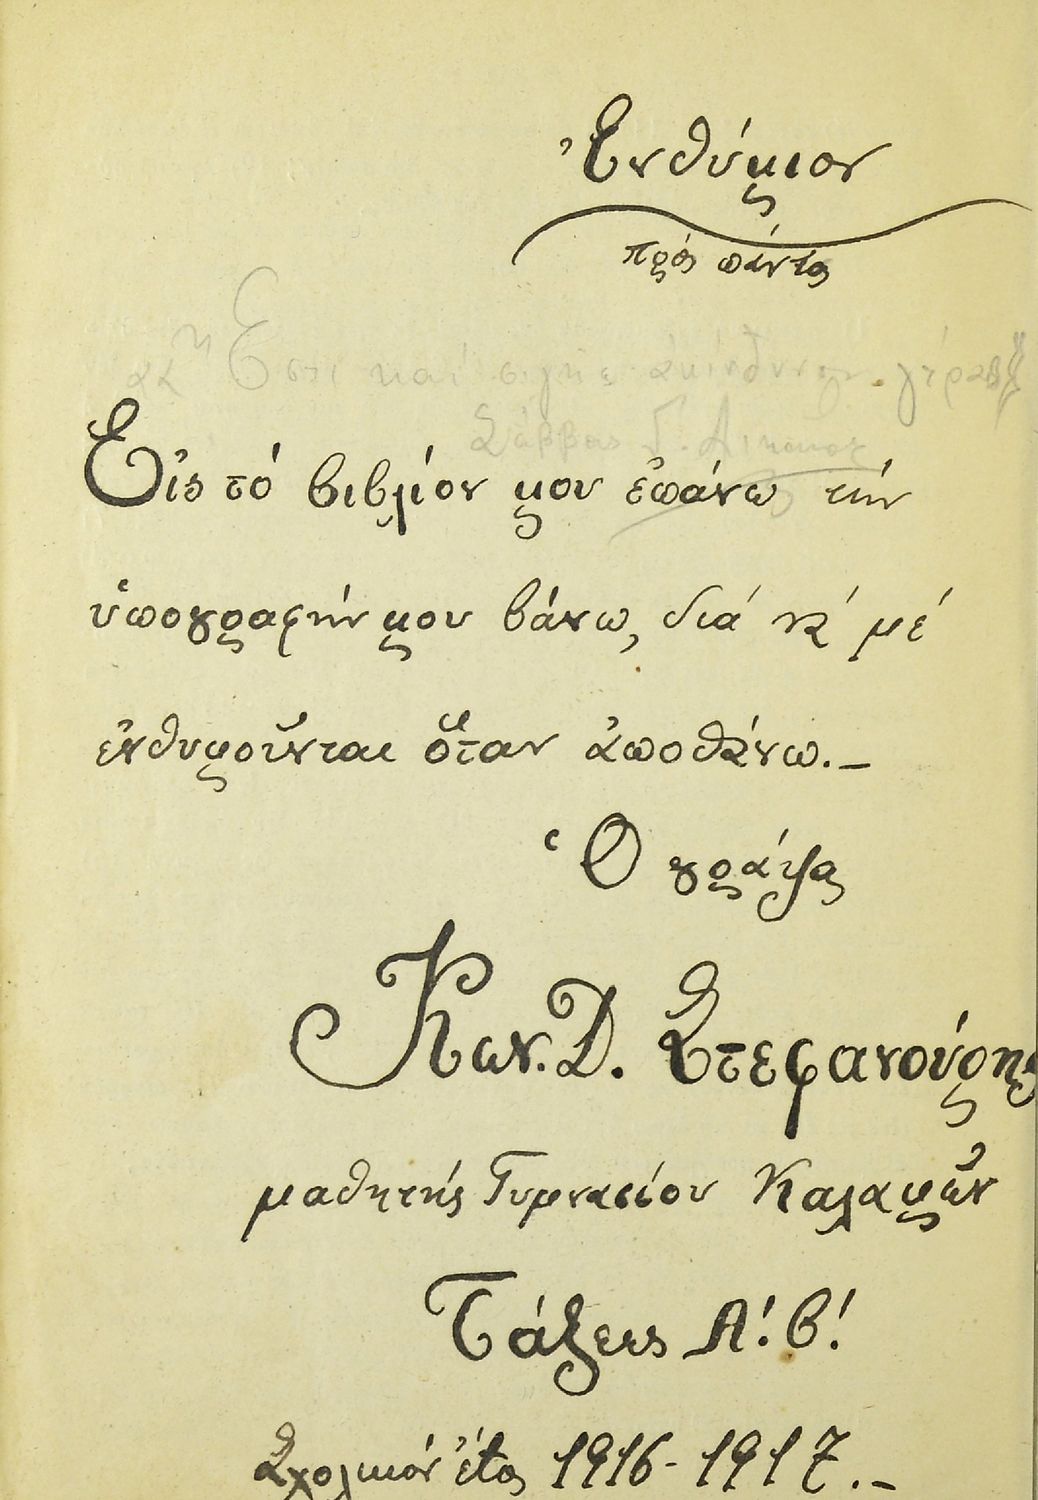 Ἐνθύμιον
πρός πάντας
Ἔστι καί σιγῆς ἀκίνδυνον γέρας
Σάββας Γ.
Εἰς τό βιβλίον μου ἐπάνω τήν
ὑπογραφήν μου βάνω, διά ν' μέ
ἐνθυμοῦνται ὅταν ἀποθάνω.—
Ὁ γράψας
Κων. Δ. Στεφανούρης
μαθητής Γυμνασίου Καλαμῶν
Τάξεως Α'. Β'.
Σχολικόν ἔτος 1916-1917.—